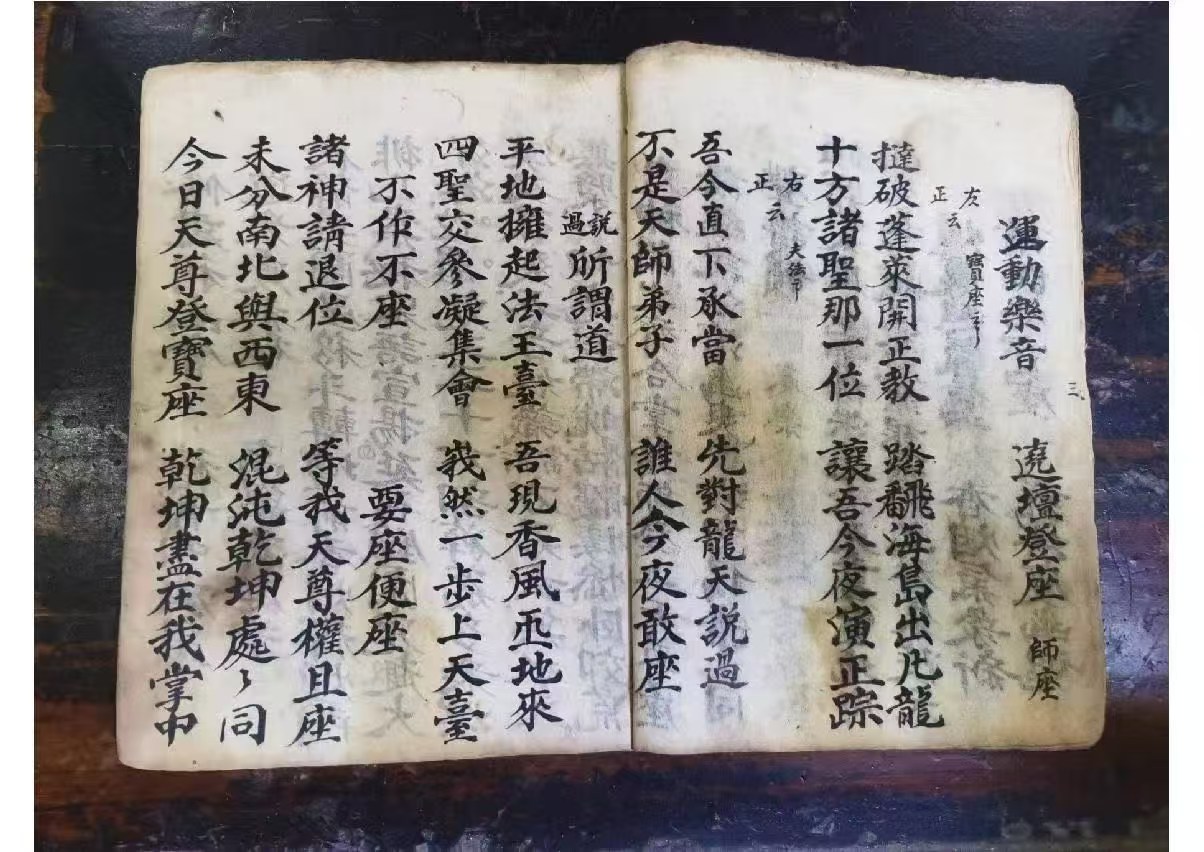 運動樂音 遶壇登座 師座
三
左正云 寶座
撻破蓬萊開正教 踏翻海島出凡龍
十方諸聖那一位 讓吾今夜演正踪
右正云
吾今直下承當 先對龍天說過
不是天師弟子 誰人今夜敢座
說過 所謂道
平地擁起法王臺 吾現香風帀地來
四聖交參凝集會 峩然一步上天臺
不作不座 要座便座
諸神請退位 等我天尊權且座
未分南北與西東 混沌乾坤處々同
今日天尊登寶座 乾坤盡在我掌中